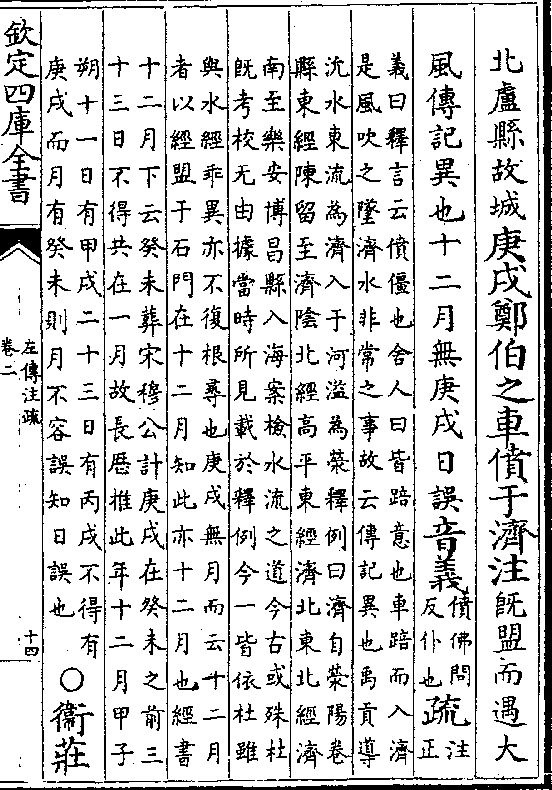 北盧縣故城庚戌鄭伯之車僨于濟注旣盟而遇大
風傳記異也十二月無庚戌日誤音義僨佛問
反仆也疏注
正
義曰釋言云僨僵也舍人曰皆踣意也車踣而入濟
是風吹之墜濟水非常之事故云傳記異也禹貢導
沇水東流為濟入于河溢為滎釋例曰濟自滎陽卷
縣東經陳留至濟陰北經高平東經濟北東北經濟
南至樂安博昌縣入海案檢水流之道今古或殊杜
旣考校无由據當時所見載於釋例今一皆依杜雖
與水經乖異亦不復根尋也庚戌無月而云十二月
者以經盟于石門在十二月知此亦十二月也經書
十二月下云癸未葬宋穆公計庚戌在癸未之前三
十三日不得共在一月故長厯推此年十二月甲子
朔十一日有甲戌二十三日有丙戌不得有
庚戌而月有癸未則月不容誤知日誤也
○衞莊
欽定四庫全書
左傳注疏
卷二
十四